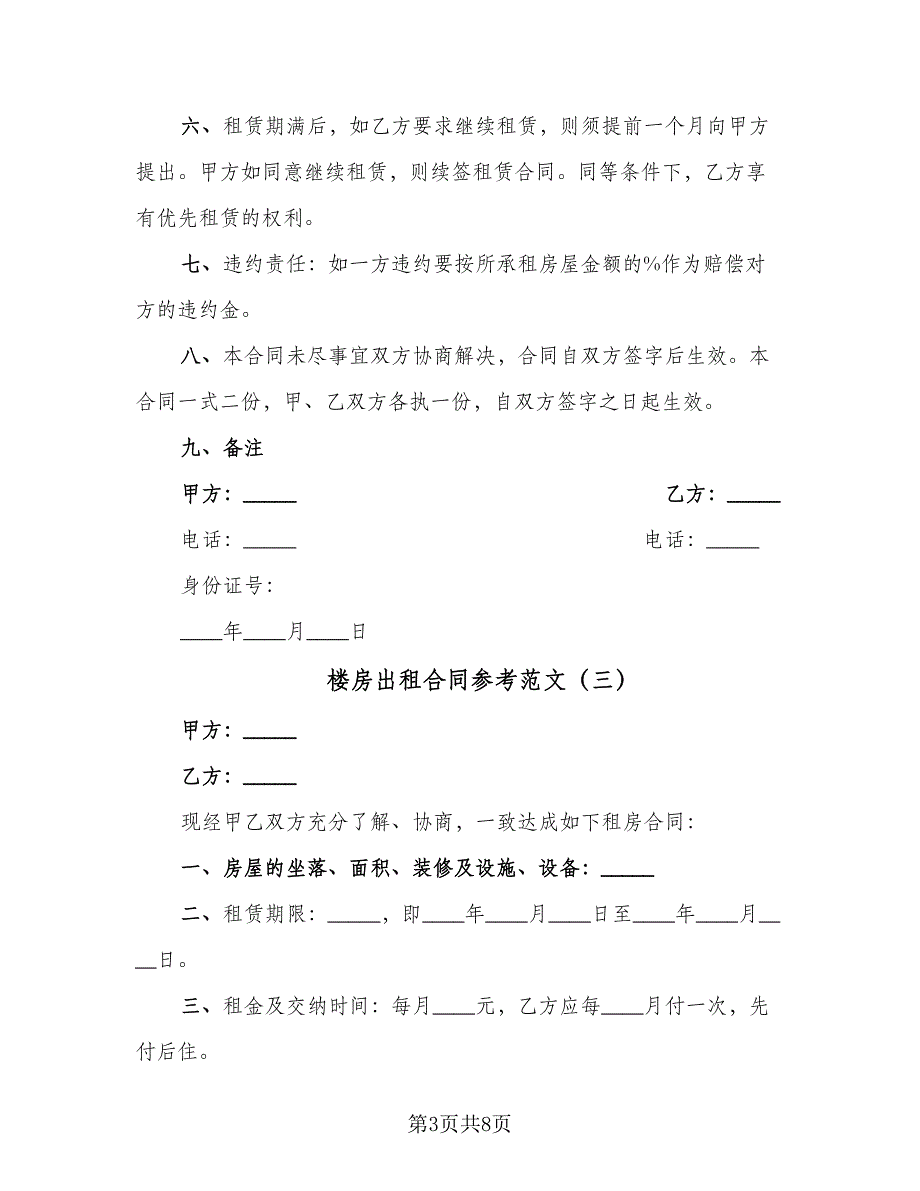 六、租赁期满后，如乙方要求继续租赁，则须提前一个月向甲方
提出。甲方如同意继续租赁，则续签租赁合同。同等条件下，乙方享
有优先租赁的权利。
七、违约责任：如一方违约要按所承租房屋金额的%作为赔偿对
方的违约金。
八、本合同未尽事宜双方协商解决，合同自双方签字后生效。本
合同一式二份，甲、乙双方各执一份，自双方签字之日起生效。
九、备注
甲方：_____ 乙方：_____
电话：_____ 电话：_____
身份证号：
____年____月____日
楼房出租合同参考范文（三）
甲方：_____
乙方：_____
现经甲乙双方充分了解、协商，一致达成如下租房合同：
一、房屋的坐落、面积、装修及设施、设备：_____
二、租赁期限：_____，即____年____月____日至____年____月__
__日。
三、租金及交纳时间：每月____元，乙方应每____月付一次，先
付后住。
第3页共8页